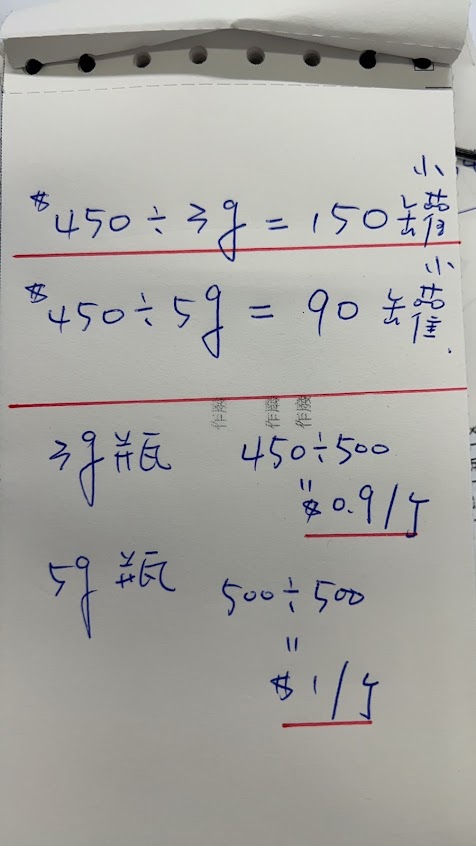 $450÷3g=150小罐
$450÷5g=90小罐.
作廢 作廢 作廢
3g瓶 450÷500
"
$0.9/个
5g瓶 500÷500
"
$1/个